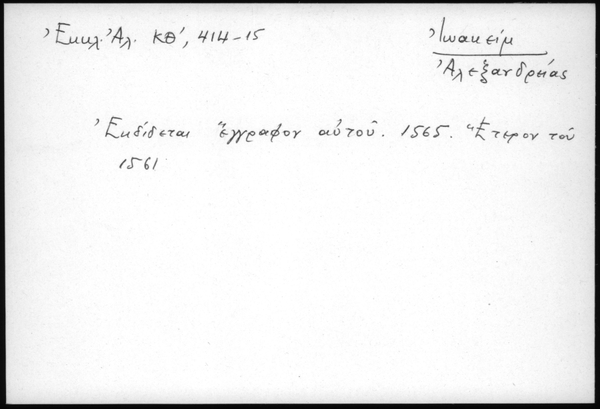 Ἐκκλ. Ἀλ. ΚΘ', 414-15
Ἰωακείμ
Ἀλεξανδρείας
Ἐκδίδεται ἔγγραφον αὐτοῦ. 1565. Ἕτερον τοῦ
1561